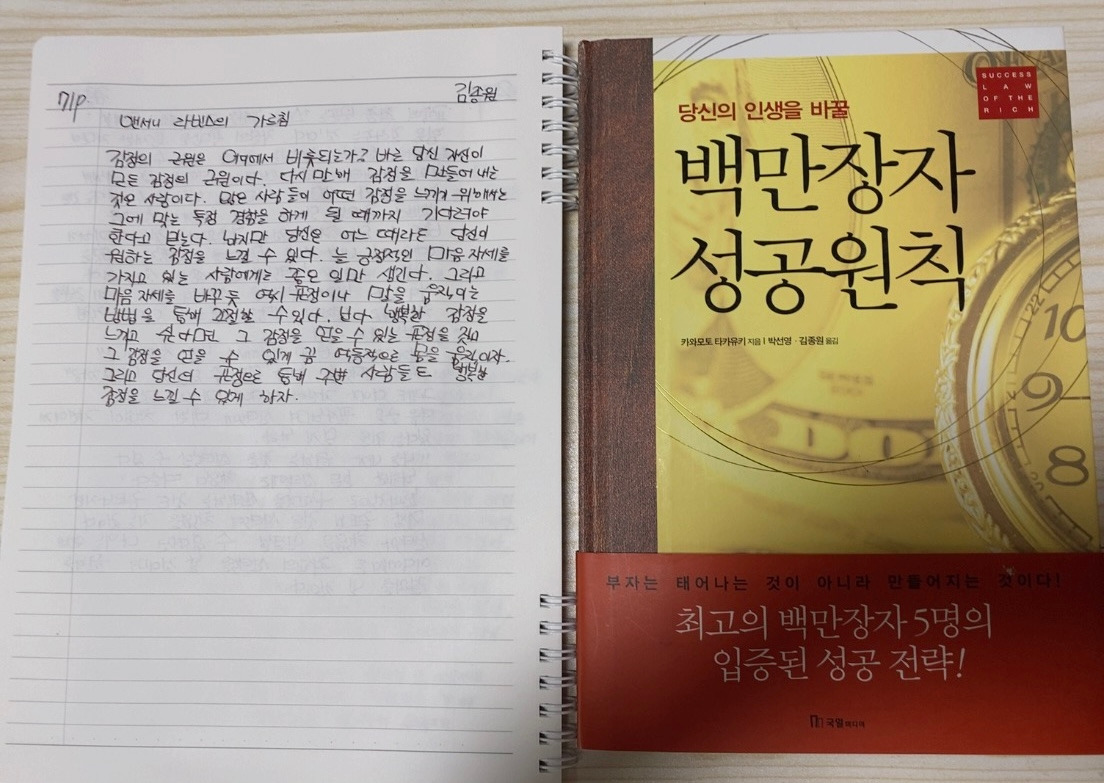 71p
김종원
앤서니 라빈스의 가르침
감정의 근원은 어디에서 비롯되는가? 바로 당신 자신이
모든 감정의 근원이다. 다시 말해 감정을 만들어 내는
것은 사람이다. 많은 사람들이 어떤 감정을 느끼기 위해서는
그에 맞는 특정 경험을 하게 될 때까지 기다려야
한다고 믿는다. 하지만 당신은 어느 때라도 당신이
원하는 감정을 느낄 수 있다. 늘 긍정적인 마음 자세를
가지고 있는 사람에게는 좋은 일만 생긴다. 그리고
마음 자세를 바꾸듯 역시 표정이나 몸을 움직이는
방법을 통해 조절할 수 있다. 보다 행복한 감정을
느끼고 싶다면 그 감정을 얻을 수 있는 표정을 짓고
그 감정을 얻을 수 있게 끔 여동적으로 몸을 움직이자.
그리고 당신의 표정으로 통해 주변 사람들도 행복한
감정을 느낄 수 있게 하자.
SUCCESS
LAW
OF THE
RICH
당신의 인생을 바꿀
백만장자
성공원칙
카와모토 타카유키 지음 | 박선영 · 김종원 옮김
12
10
9
8
부자는 태어나는 것이 아니라 만들어지는 것이다!
최고의 백만장자 5명의
입증된 성공 전략!
국일미디어